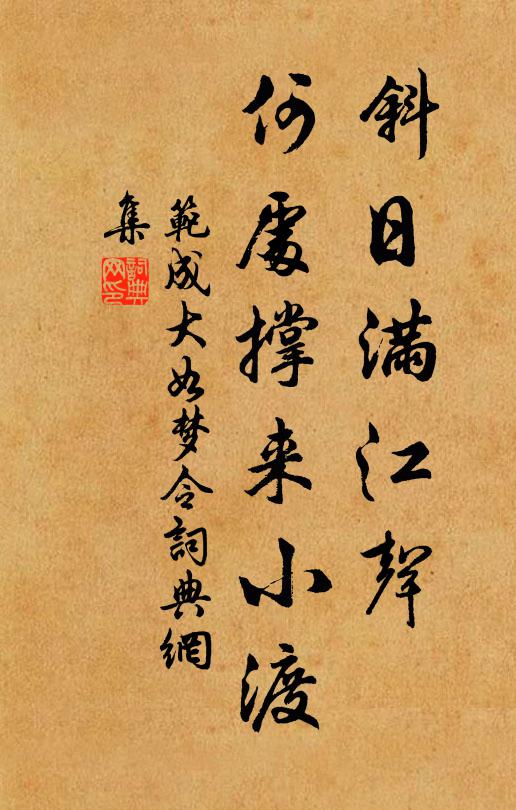 斜日滿江聲
何處撐来小渡
範成大如梦令詞典網
集
詞典
网印